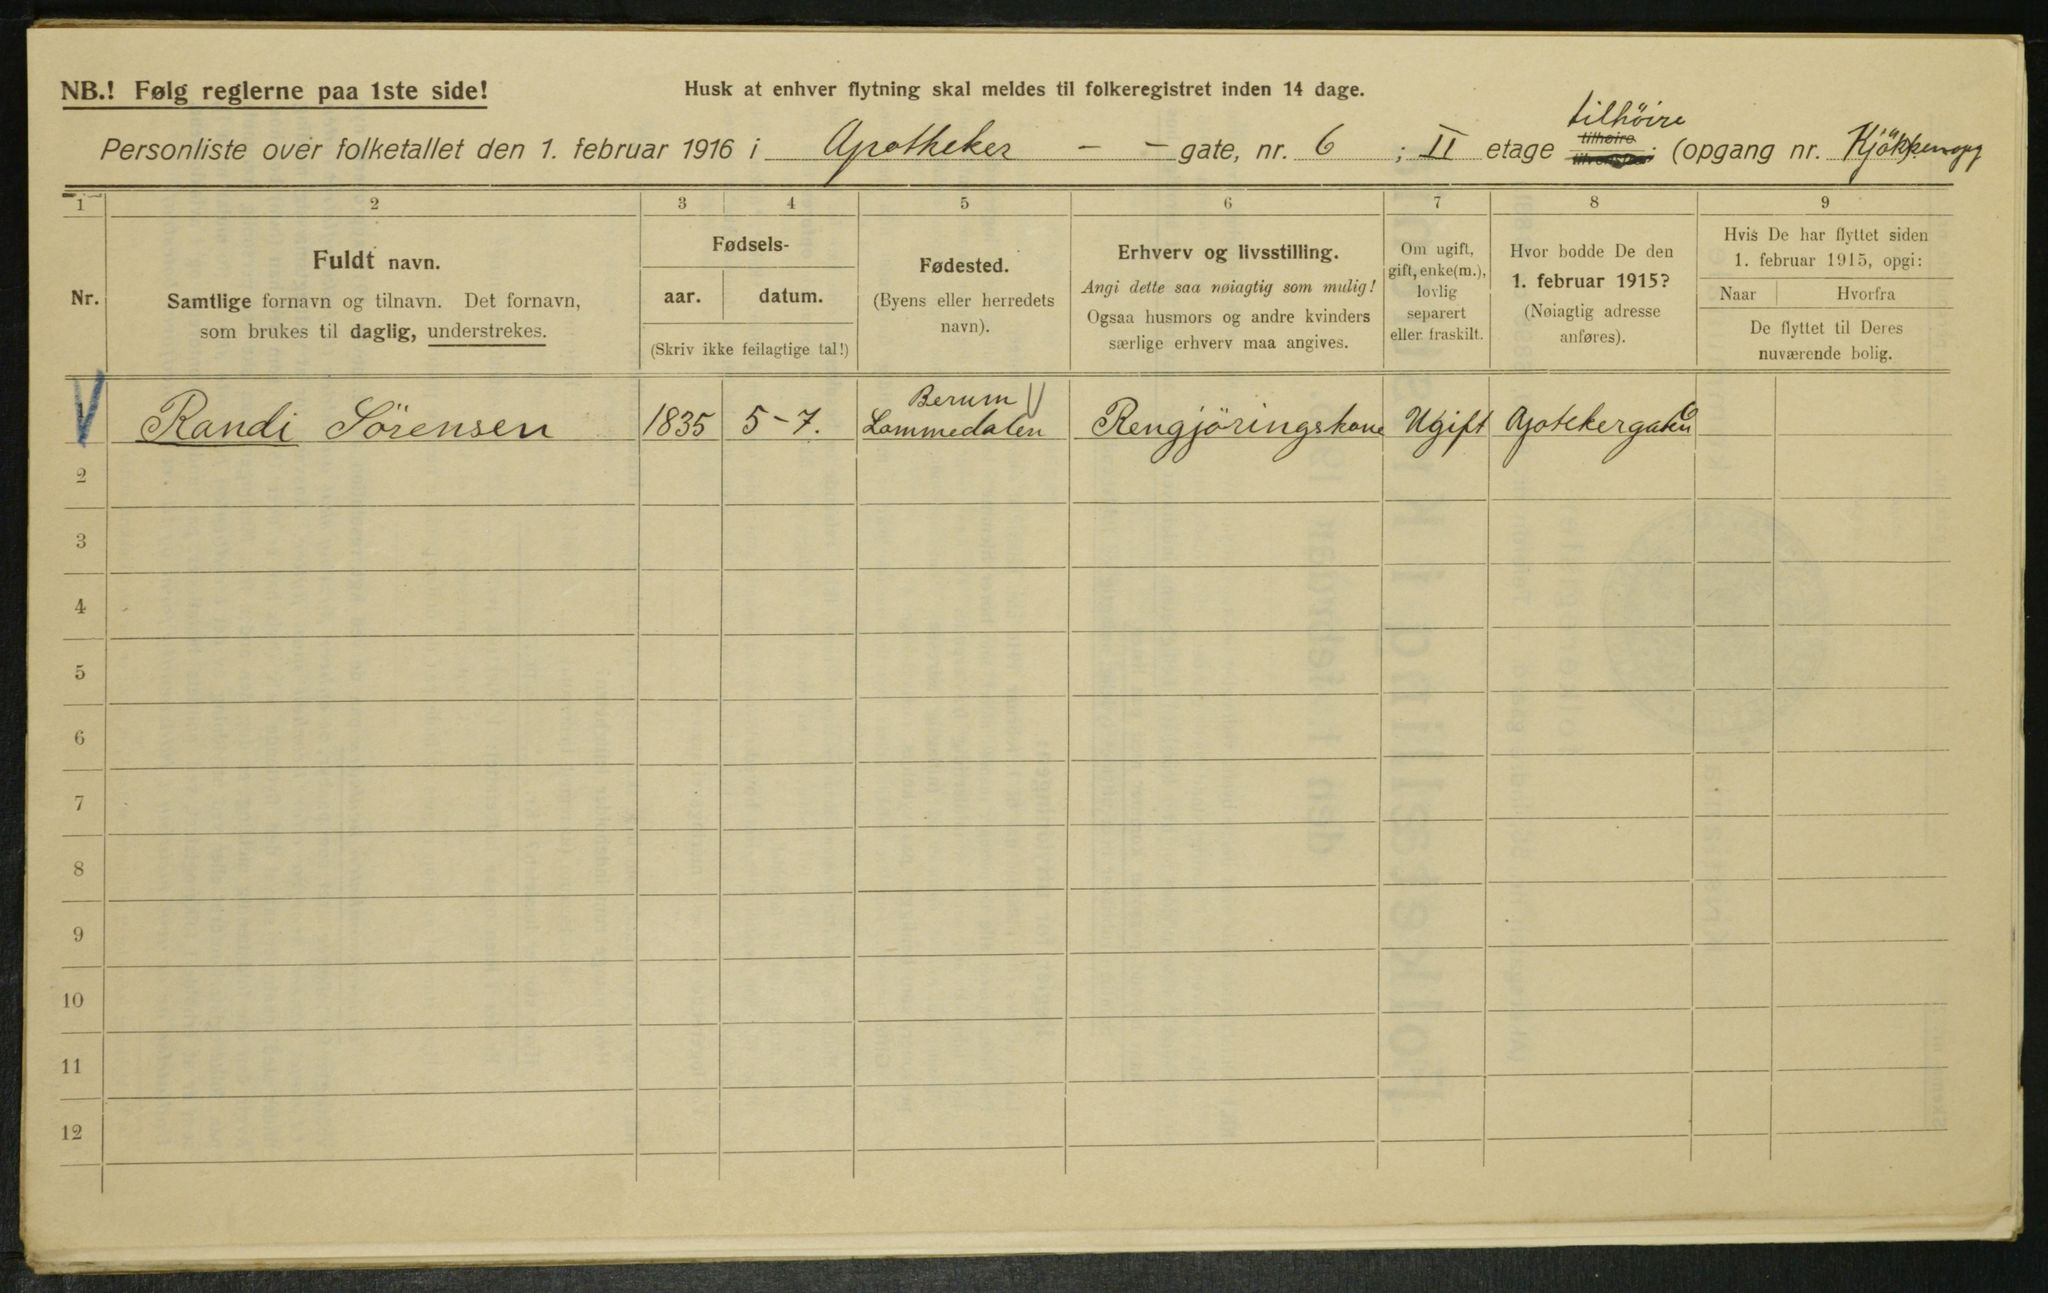 NB.! Følg reglerne paa 1ste side!
Husk at enhver flytning skal meldes til folkeregistret inden 14 dage.
tilhöire
Personliste over folketallet den 1. februar 1916 i Apotheker - - gate, nr. 6 ; II etage tilhøire (opgang nr. Kjökkenopg
1 2 3 4 5 6 7 8 9
Nr.
Fuldt navn.
Samtlige fornavn og tilnavn. Det fornavn,
som brukes til daglig, understrekes.
Fødsels-
aar. datum.
(Skriv ikke feilagtige tal!)
Fødested.
(Byens eller herredets
navn).
Erhverv og livsstilling.
Angi dette saa nøiagtig som mulig!
Ogsaa husmors og andre kvinders
særlige erhverv maa angives.
Om ugift,
gift, enke(m.),
lovlig
separert
eller fraskilt.
Hvor bodde De den
1. februar 1915?
(Nøiagtig adresse
anføres).
Hvis De har flyttet siden
1. februar 1915, opgi:
Naar Hvorfra
De flyttet til Deres
nuværende bolig.
Berum
1 Randi Sörensen 1835 5-7. Lommedalen Rengjöringskone Ugift Apotekergaten 6
2
3
4
5
6
7
8
9
10
11
12